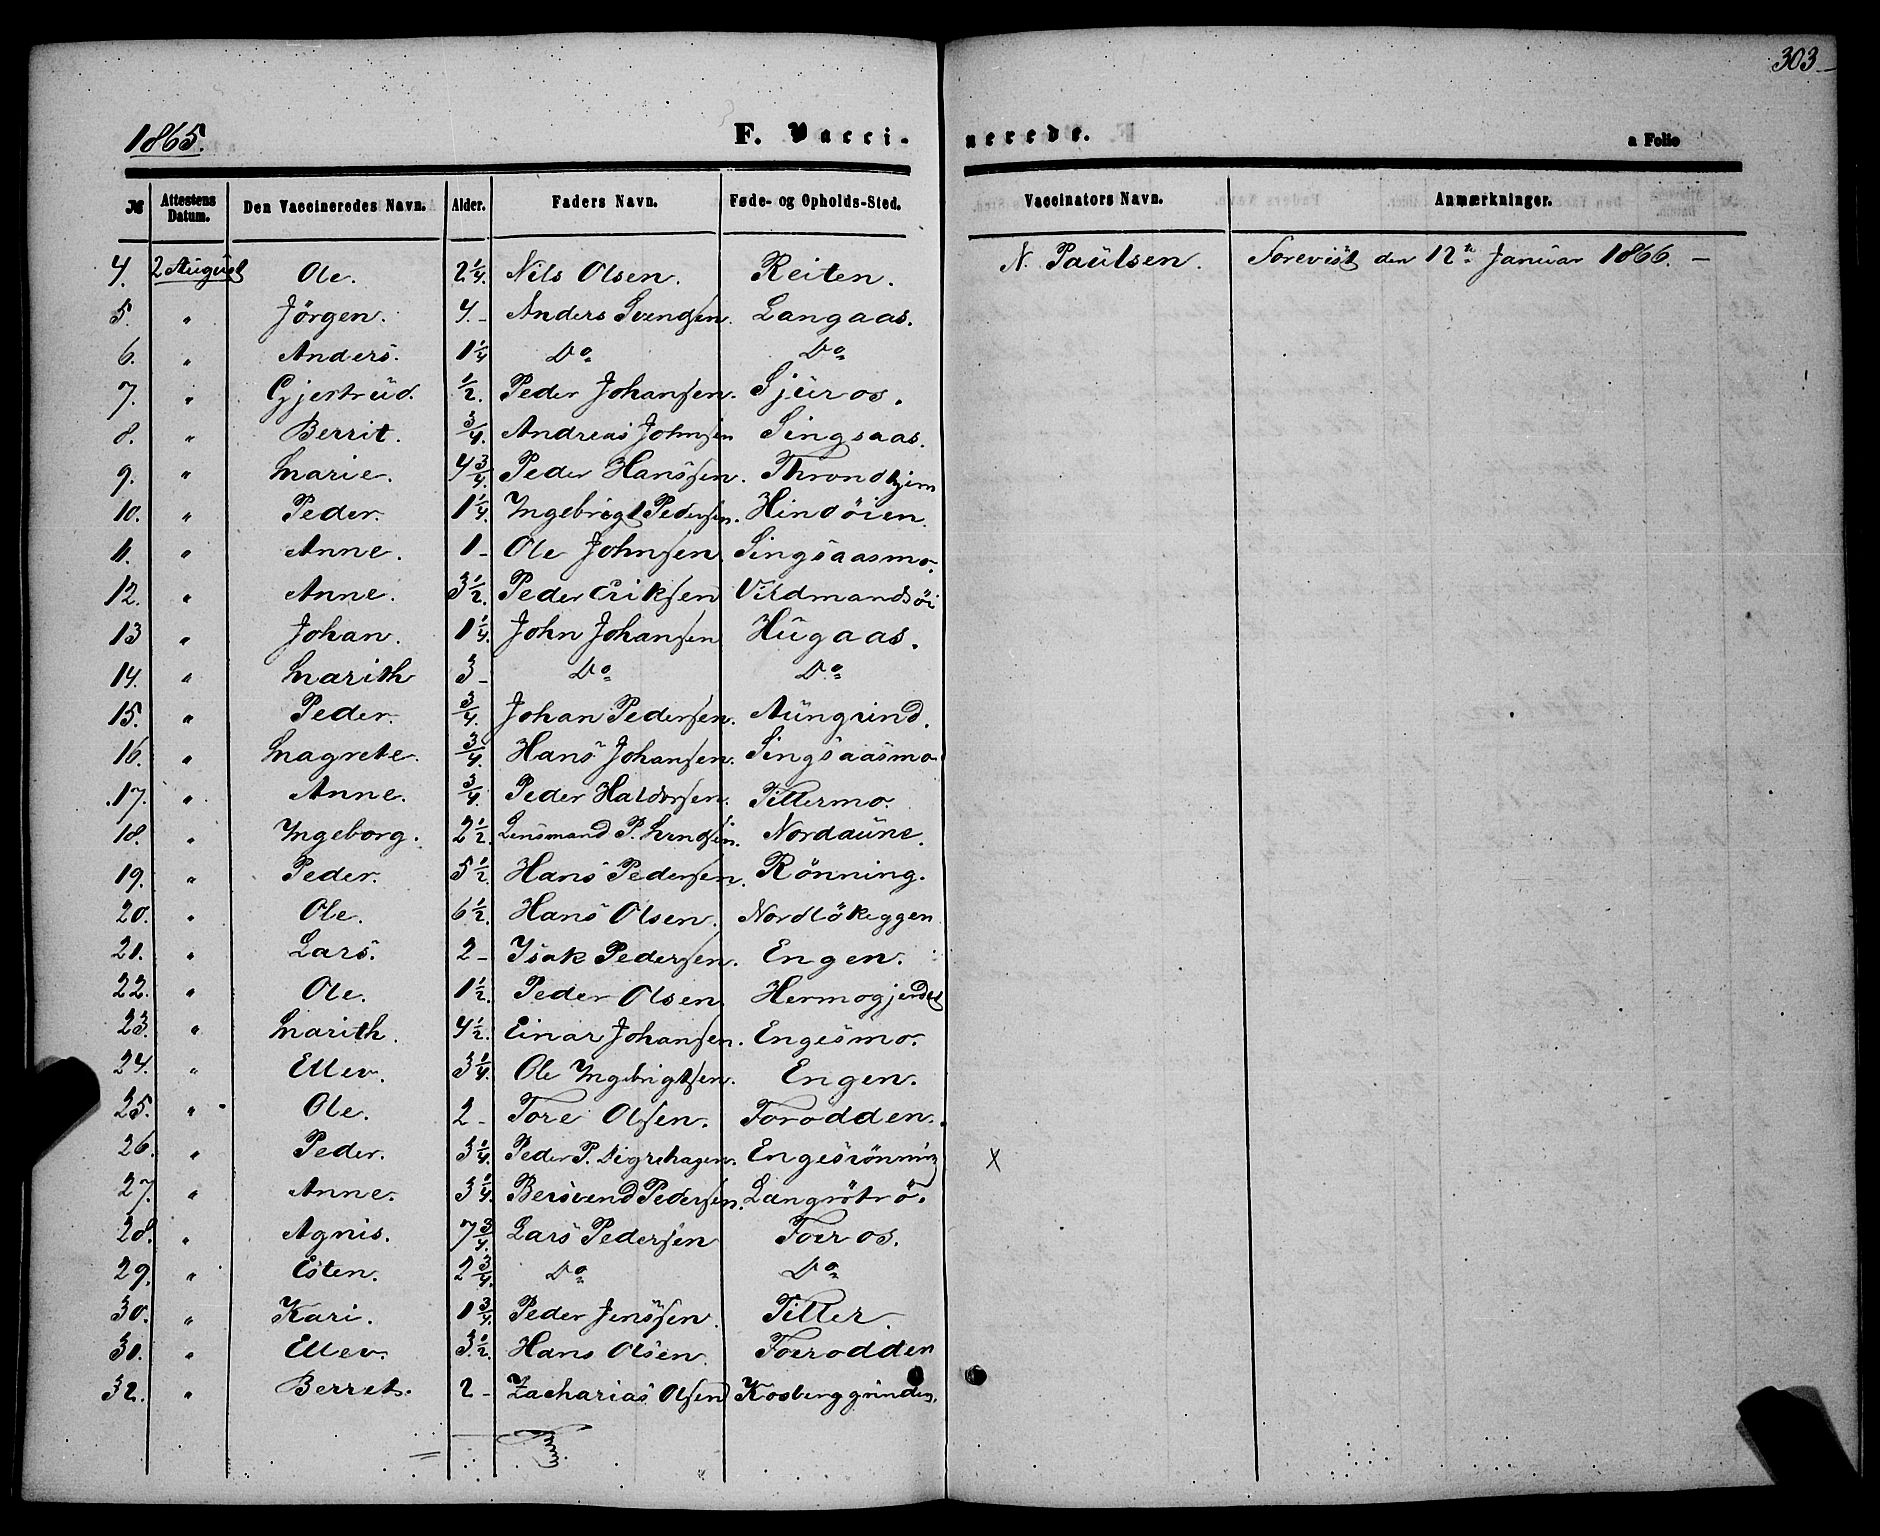 303
1865.
F. Vaccinerede.
a Folio
№ Attestens Datum. Den Vaccineredes Navn. Alder. Faders Navn. Føde- og Opholds-Sted. Vaccinators Navn. Anmærkninger.
4. 2 August Ole. 2 1/4. Nils Olsen. Reiten. N. Paulsen. Forevist den 12te Januar 1866. –
5. " Jörgen. 4.- Anders Svendsen. Langaas.
6. " Anders. 1 1/4 Do Do
7. " Gjertrud. 1/2. Peder Johansen. Sjuros.
8. " Berrit. 3/4. Andreas Johnsen Singsaas.
9. " Marie. 4 3/4. Peder Hanssen. Throndhjem
10. " Peder. 1 1/4. Ingebrigt Pedersen. Hindöien.
11. " Anne. 1- Ole Johnsen. Singsaasmo.
12. " Anne. 3 1/2. Peder Eriksen Vildmandsöi
13 " Johan. 1 1/4. John Johansen Hugaas.
14. " Marith 3- Do Do
15. " Peder. 3/4. Johan Pedersen. Aungrind.
16. " Magrete. 3/4. Hans Johansen. Singsaasmo
17. " Anne. 3/4. Peder Haldorsen. Tillermo.
18. " Ingeborg. 2 1/2. Lensmand P. Nordaune.
19. " Peder. 5 1/2. Hans Pedersen. Rönning.
20. " Ole. 6 1/2. Hans Olsen. Nordlökeggen
21. " Lars. 2- Isak Pedersen. Engen.
22. " Ole. 1 1/2. Peder Olsen. Hermogjerdet
23. " Marith. 4 1/2. Einar Johansen. Engesmo.
24. " Ellev. 3 1/4. Ole Ingebrigtsen. Engen.
25. " Ole. 2- Tore Olsen. Forodden.
26. " Peder. 3 1/4. Peder P. Digrehagen. Engesrönning X
27. " Anne. 3 1/4. Bersvend Pedersen. Langrötrö.
28. " Agnis. 7 3/4. Lars Pedersen Foeros.
29. " Esten. 2 3/4. Do Do
30. " Kari. 1 3/4. Peder Jenssen. Tiller.
31. " Ellev. 3 1/2. Hans Olsen. Foerodden
32. " Berret. 2- Zacharias Olsen Kosberggrinden.